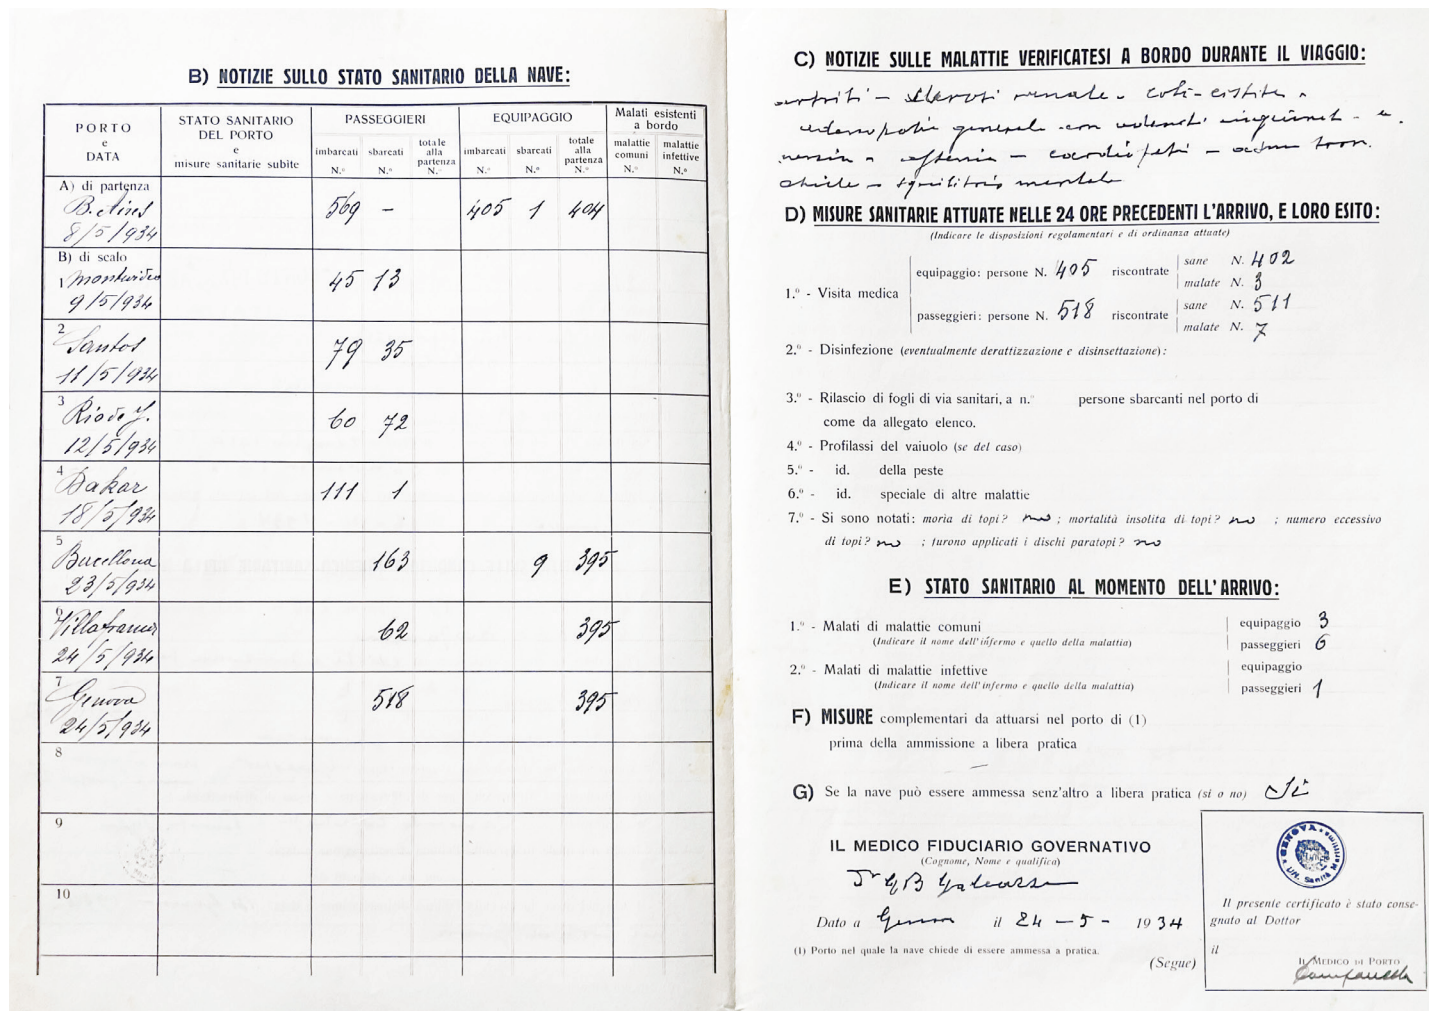 B) NOTIZIE SULLO STATO SANITARIO DELLA NAVE:
PORTO e DATA
STATO SANITARIO DEL PORTO e misure sanitarie subite
PASSEGGIERI
EQUIPAGGIO
Malati esistenti a bordo
imbarcati N.º sbarcati N.º totale alla partenza N.º
imbarcati N.º sbarcati N.º totale alla partenza N.º
malattie comuni N.º malattie infettive N.º
A) di partenza
B. Aires 569 - 405 1 404
8/5/934
B) di scalo
1 Montevideo 45 13
9/5/934
2
Santos 79 35
11/5/934
3
Rio de J. 60 72
12/5/934
4
Dakar 111 1
18/5/934
5
Barcellona 163 9 395
23/5/934
6
Villafranca 62 395
24/5/934
7
Genova 518 395
24/5/934
8
9
10
C) NOTIZIE SULLE MALATTIE VERIFICATESI A BORDO DURANTE IL VIAGGIO:
artriti - sclerosi renale - coli-cistite
generale con
astenia - cardiopatie
squilibrio mentale
D) MISURE SANITARIE ATTUATE NELLE 24 ORE PRECEDENTI L'ARRIVO, E LORO ESITO:
(Indicare le disposizioni regolamentari e di ordinanza attuate)
1.º - Visita medica
equipaggio: persone N. 405 riscontrate sane N. 402
malate N. 3
passeggieri: persone N. 518 riscontrate sane N. 511
malate N. 7
2.º - Disinfezione (eventualmente derattizzazione e disinsettazione):
3.º - Rilascio di fogli di via sanitari, a n.º persone sbarcanti nel porto di
come da allegato elenco.
4.º - Profilassi del vaiuolo (se del caso)
5.º - id. della peste
6.º - id. speciale di altre malattie
7.º - Si sono notati: moria di topi? no ; mortalità insolita di topi? no ; numero eccessivo
di topi? no ; furono applicati i dischi paratopi? no
E) STATO SANITARIO AL MOMENTO DELL'ARRIVO:
1.º - Malati di malattie comuni
(Indicare il nome dell'infermo e quello della malattia)
equipaggio 3
passeggieri 6
2.º - Malati di malattie infettive
(Indicare il nome dell'infermo e quello della malattia)
equipaggio
passeggieri 1
F) MISURE complementari da attuarsi nel porto di (1)
prima della ammissione a libera pratica
G) Se la nave può essere ammessa senz'altro a libera pratica (si o no) Si
IL MEDICO FIDUCIARIO GOVERNATIVO
(Cognome, Nome e qualifica)
Dr G B
Dato a Genova il 24 - 5 - 1934
(1) Porto nel quale la nave chiede di essere ammessa a pratica.
(Segue)
GENOVA
Il presente certificato è stato conse-
gnato al Dottor
il
IL MEDICO DI PORTO
Campanella